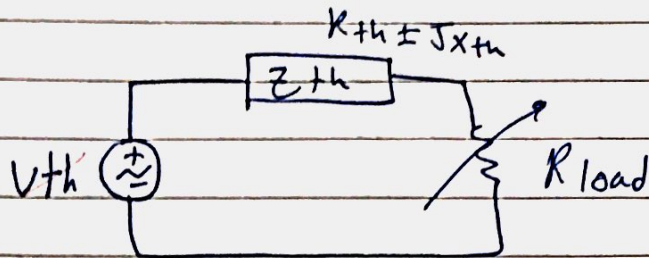 Rth ± Jxth
Zth
+
~
-
Vth
Rload